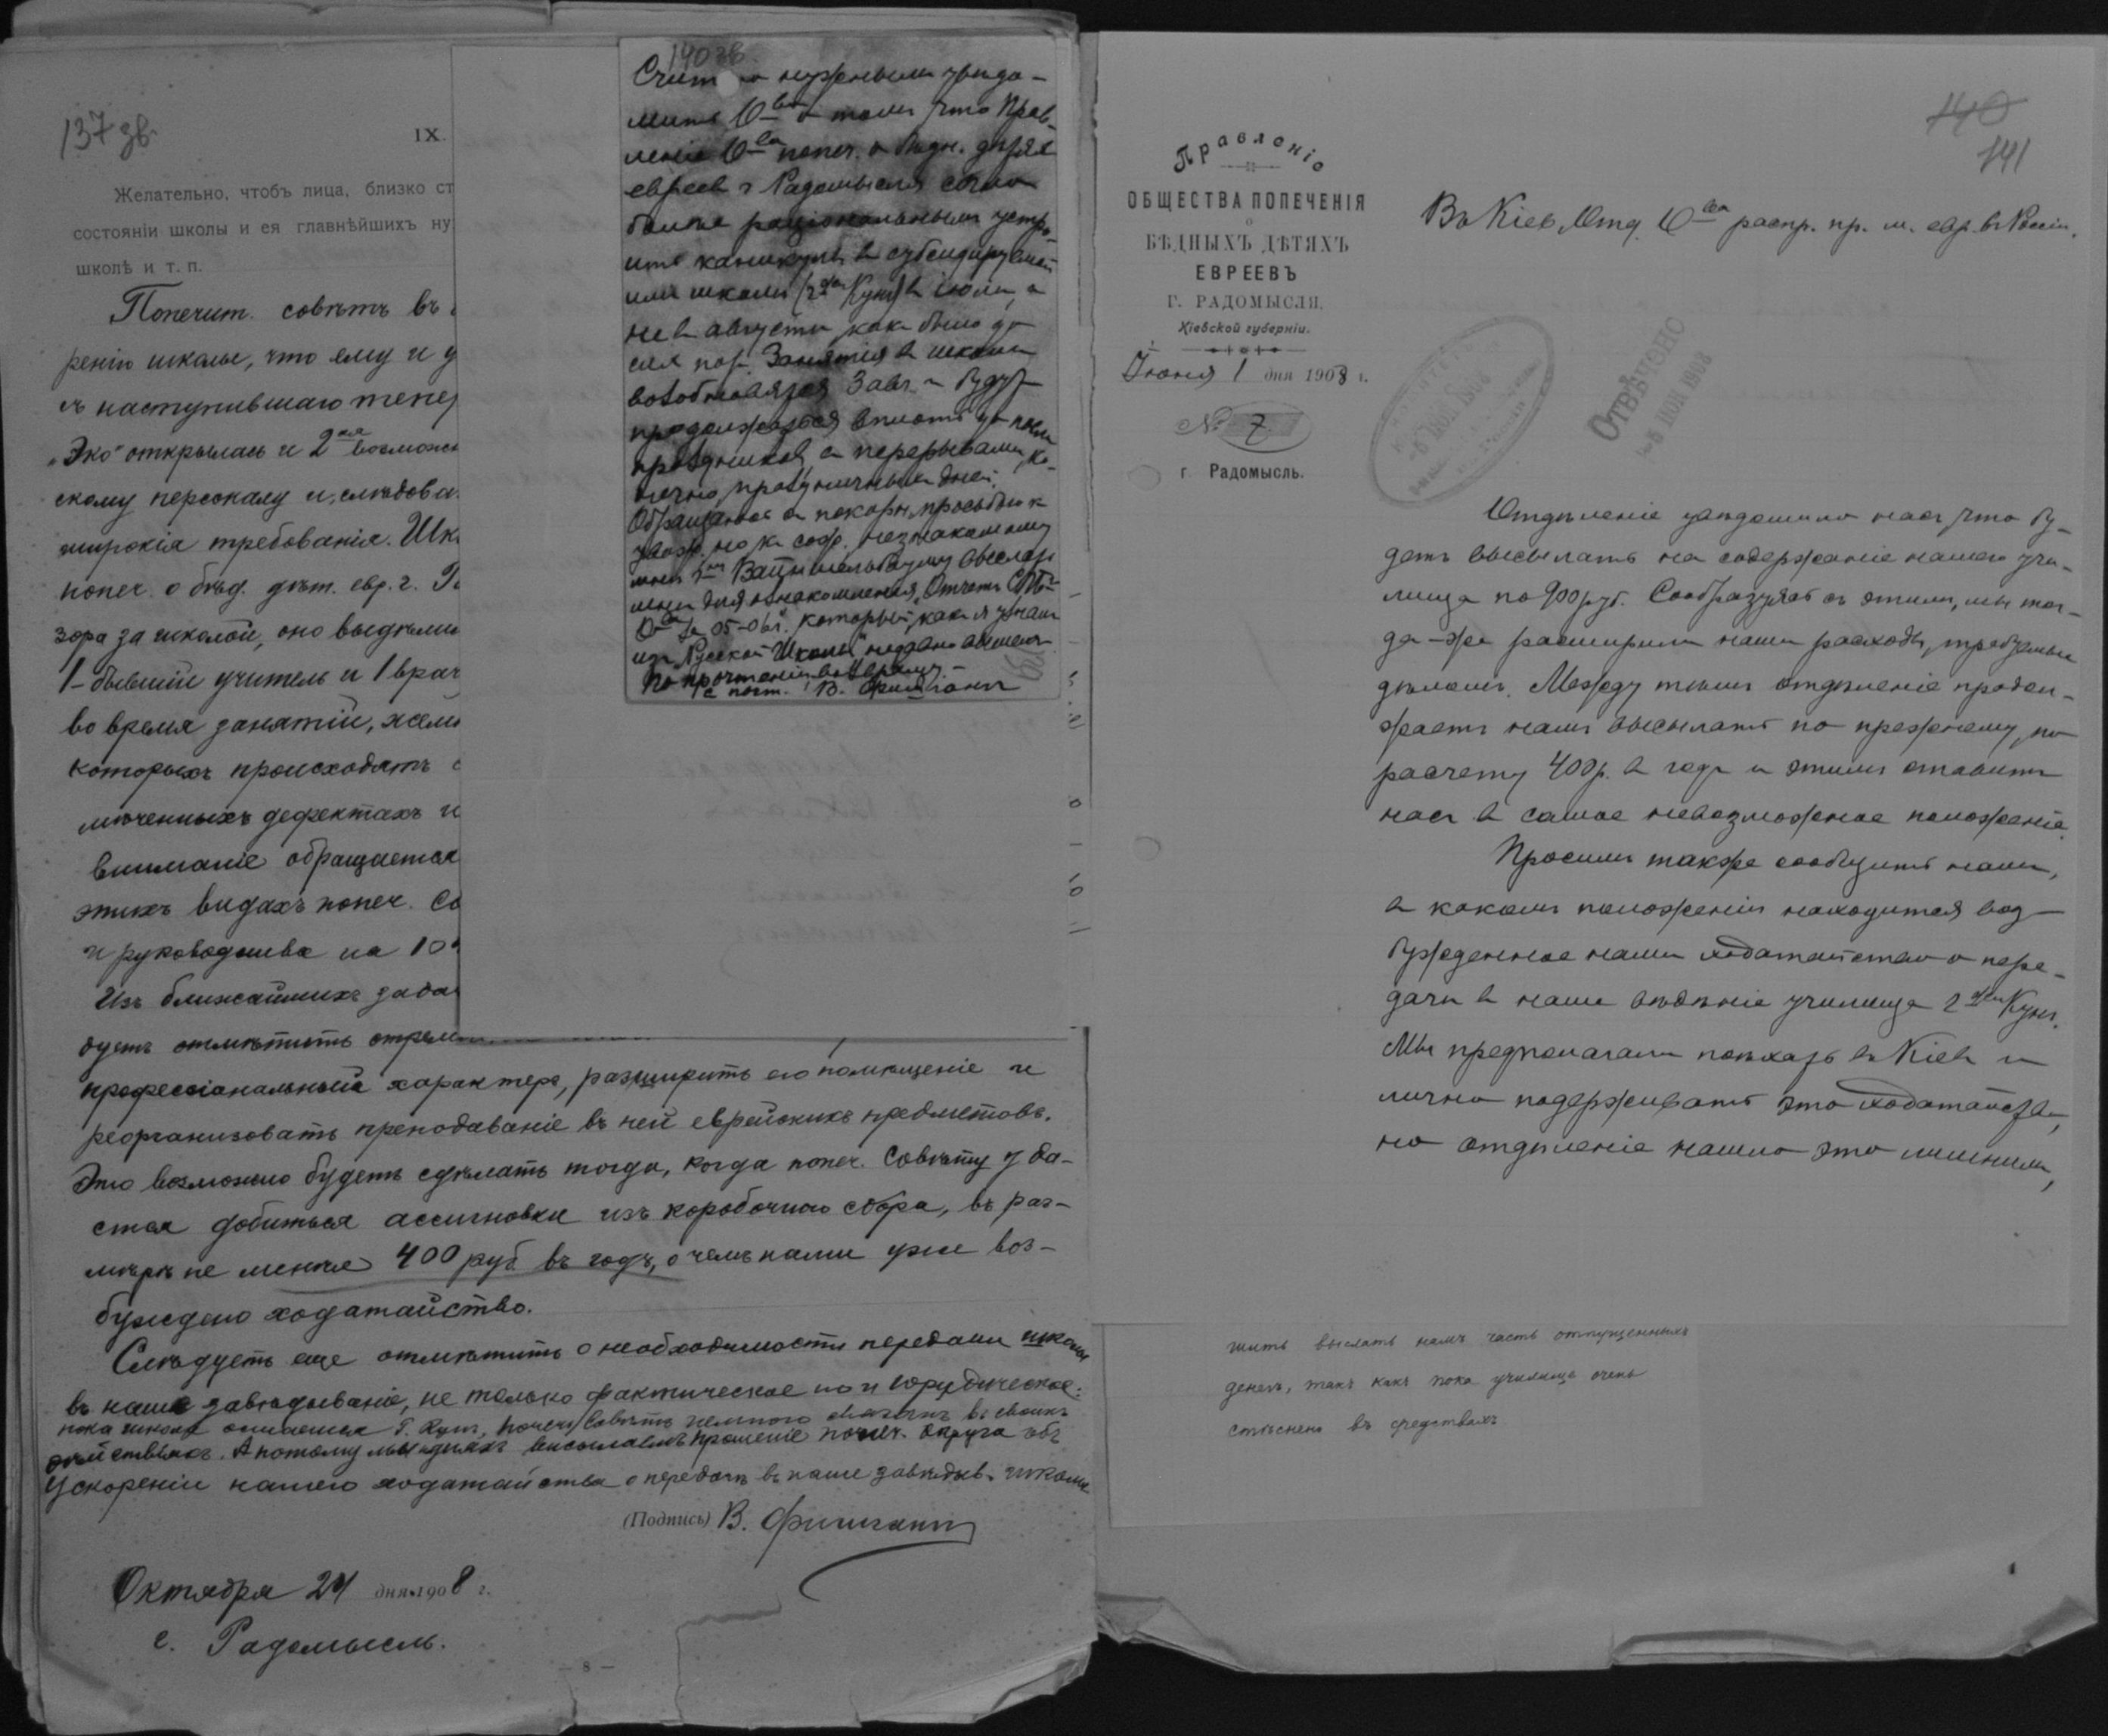 137 зв.
IX.
Желательно, чтобъ лица, близко ст
состояніи школы и ея главнѣйшихъ ну
школѣ и т. п.
Попечит. совѣтъ въ
рѣнію школы, что ему и у
съ наступившаго тепер
„Эко" открылась и 2ая возможн
скому персоналу и, слѣдова
широкія требованія. Шк
попеч. о бѣд. дѣт. евр. г. Р
зора за школой, оно выдѣли
1 - бывшій учитель и 1 врач
во время занятій, жела
которыхъ происходятъ
мѣченныхъ дефектахъ и
вниманіе обращается
этихъ видахъ попеч. Со
и руководства на 10
Изъ ближайшихъ зада
дуетъ отмѣтить стрем
профессіональный характеръ, расширить его помѣщеніе и
реорганизовать преподаваніе въ ней еврейскихъ предметовъ.
Это возможно будетъ сдѣлать тогда, когда попеч. Совѣту уда-
стся добиться ассигновки изъ коробочнаго сбора, въ раз-
мѣрѣ не менѣе 400 руб. въ годъ, о чемъ нами уже воз-
буждено ходатайство.
Слѣдуетъ еще отмѣтить о необходимости передачи школы
въ наше завѣдываніе, не только фактическое но и юридическое:
пока школа Г. Кун, попеч. Совѣтъ немного въ своихъ
дѣйствіяхъ. А потому мы на дняхъ высылаемъ прошеніе попеч. Округа объ
ускореніи нашего ходатайства о передачѣ въ наше завѣдыв. школы
(Подпись) В. Фишманъ
Октября 24 дня 1908 г.
г. Радомысль.
— 8 —
140 зв.
Счит нужнымъ увѣдо-
мить О-во о томъ что Прав-
леніе О-ва попеч. о бѣдн. дѣтях
евреев г. Радомысля сочло
болѣе раціональнымъ устро-
ить каникулы въ субсидируемой
имъ школѣ (г-жи Кун) въ іюлѣ, а
не въ августѣ, какъ было до
сих пор. Занятія въ школѣ
возобновятся 3 авг. и будут
продолжаться вплоть до
праздниковъ съ перерывами, ко-
нечно, праздничныхъ дней.
Обращаюсь съ покорн. просьбой къ
но къ сож. незнакомому
мнѣ г-ну выслать
мнѣ для ознакомленія „Отчетъ СПБ-
О-ва за 05-06 г." который, какъ я узналъ
изъ „Русской Школы" недавно вышелъ
По прочтеніи возвращу
с почт. В. Фишманъ
140
141
Правленіе
ОБЩЕСТВА ПОПЕЧЕНІЯ
о
БѢДНЫХЪ ДѢТЯХЪ
ЕВРЕЕВЪ
Г. РАДОМЫСЛЯ,
Кіевской губерніи.
Іюня 1 дня 1908 г.
№ 7
г. Радомысль.
ОТВѢЧЕНО
-5 ІЮН 1908
Въ Кіев. Отд. О-ва распр. пр. м. евр. въ Россіи.
Отдѣленіе увѣдомило насъ, что бу-
детъ высылать на содержаніе нашего учи-
лища по 900 руб. Сообразуясь съ этимъ, мы тог-
да-же расширили наши расходы, требуемые
дѣломъ. Между тѣмъ отдѣленіе продол-
жаетъ намъ высылать по прежнему, по
расчету 400 р. въ годъ и этимъ ставитъ
насъ въ самое невозможное положеніе.
Просимъ также сообщить намъ,
въ какомъ положеніи находится воз-
бужденное нами ходатайство о пере-
дачѣ въ наше вѣдѣніе училища г-жи Кун.
Мы предполагали поѣхать въ Кіевъ и
лично поддерживать это ходатайство,
но отдѣленіе нашло это лишнимъ,
жить выслать намъ часть отпущенныхъ
денегъ, такъ какъ пока училище очень
стѣснено въ средствахъ